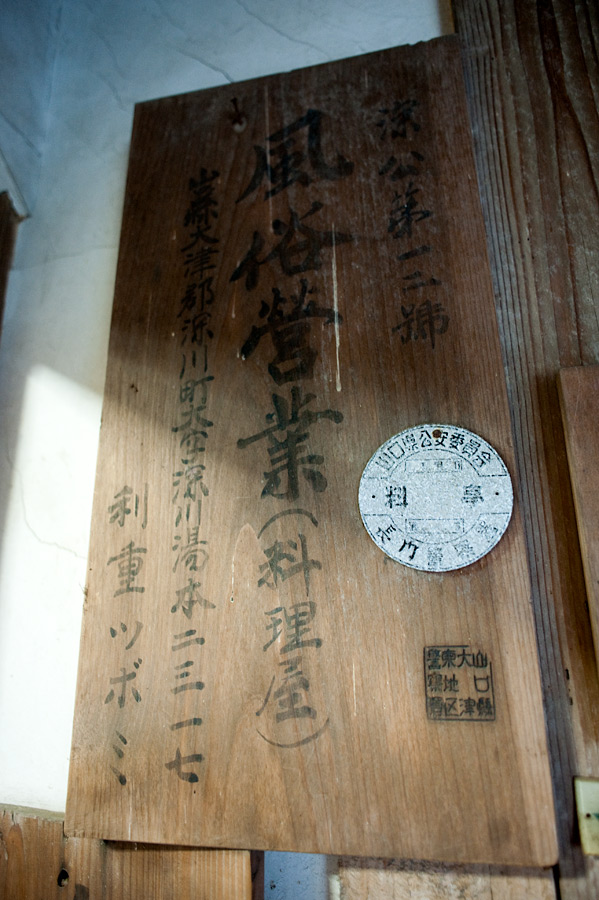 深公第一二號
風俗營業(料理屋)
山口縣大津郡深川町大字深川湯本二三一七
利重ツボミ
山口県公安委員会
料亭
長門警察署
山口縣
大津
東地区
警察署